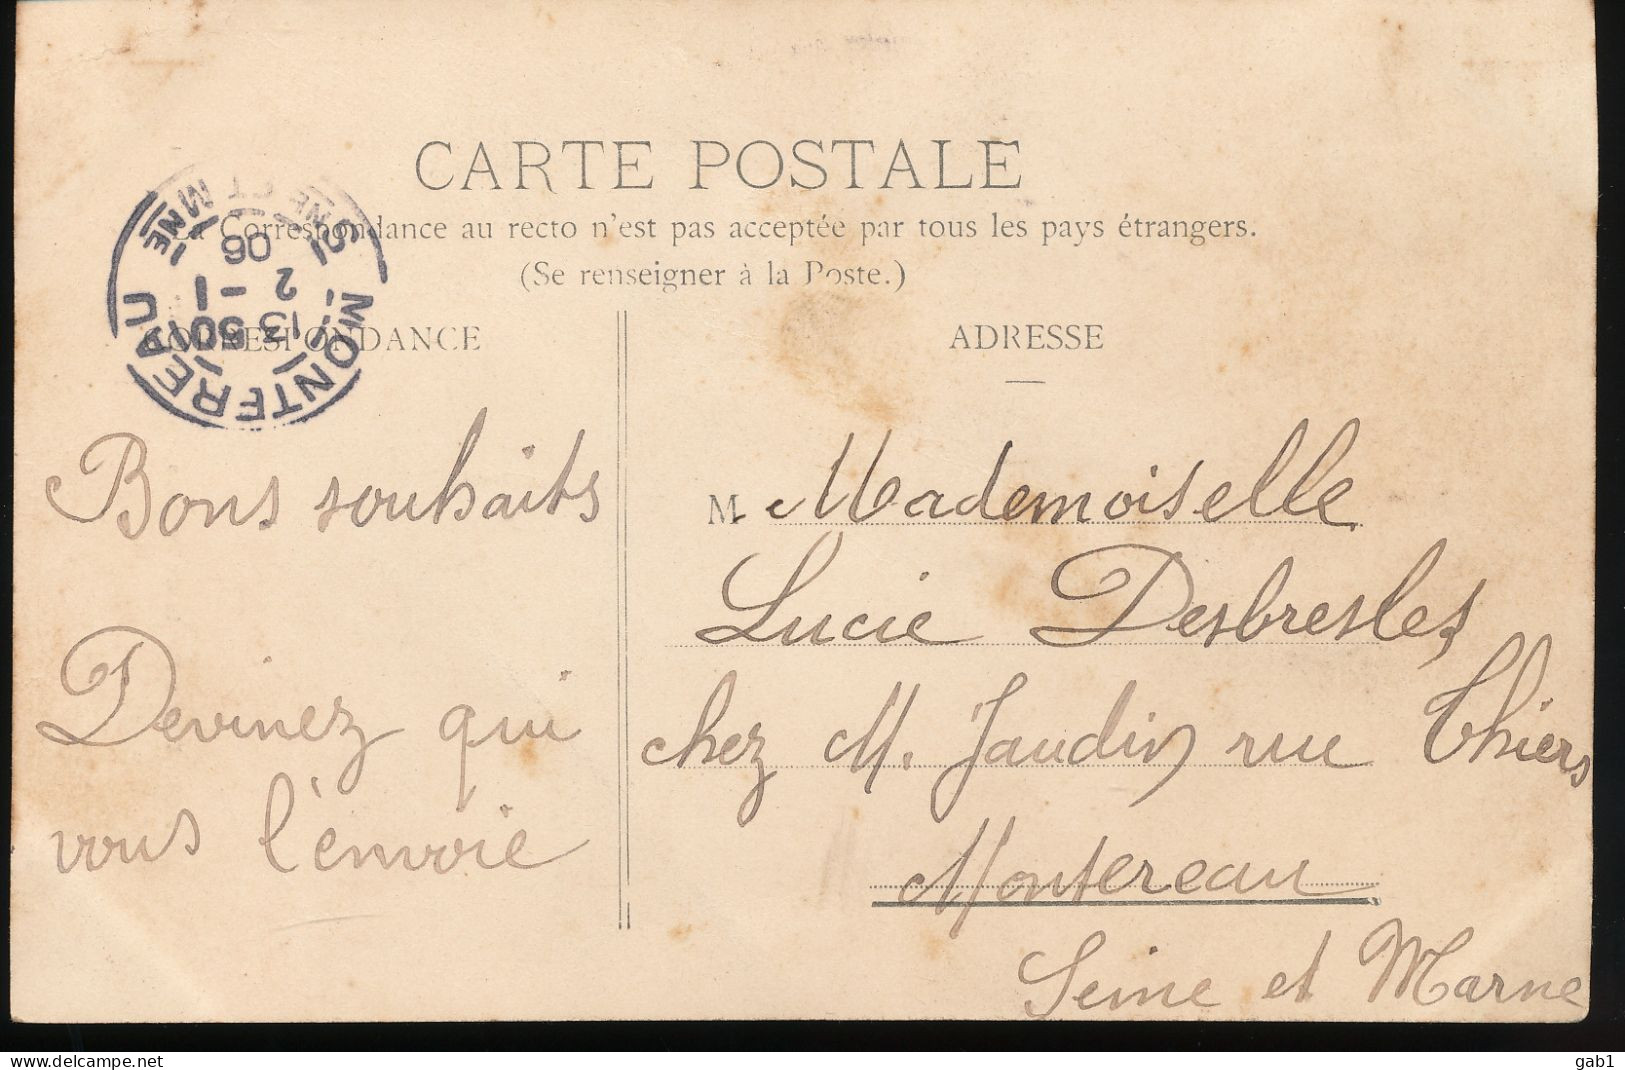 CARTE POSTALE
La Correspondance au recto n'est pas acceptée par tous les pays étrangers.
(Se renseigner à la Poste.)
CORRESPONDANCE
ADRESSE
MONTEREAU
SNE ET MNE
13 50
2 - 1
06
Bons souhaits
Devinez qui
vous l'envoie
M Mademoiselle
Lucie Desbresles
chez M. Jaudin rue Thiers
Montereau
Seine et Marne
delcampe.net
gab1